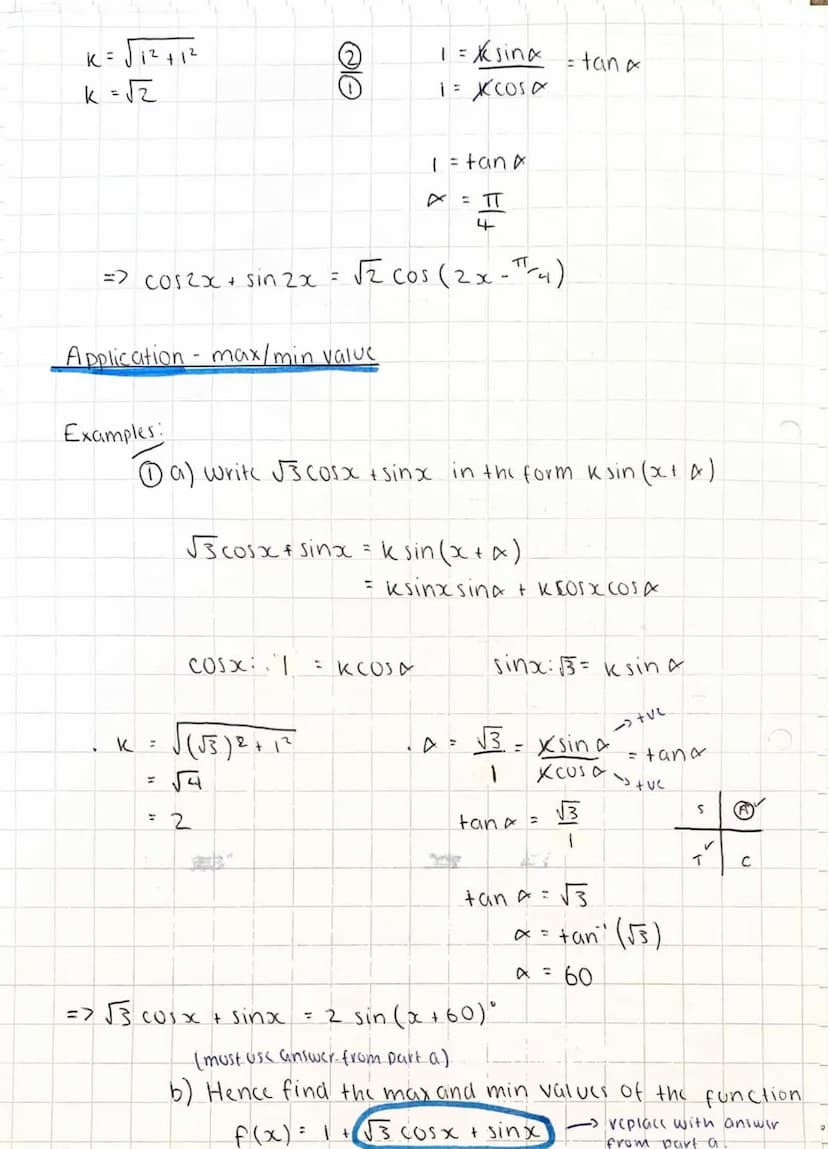 k = √1² + 1²
k = √2
② 1 = k sin α = tan α
① 1 = k cos α
1 = tan α
α = π/4
=> cos2x + sin2x = √2 cos (2x - π/4)
Application - max/min value
Examples:
① a) write √3 cosx + sinx in the form k sin (x + α)
√3 cosx + sinx = k sin (x + α)
= k sinx sinα + k cosx cosα
cosx: 1 = k cosα sinx: √3 = k sinα
k = √(√3)² + 1²
= √4
= 2
. α = √3/1 = k sinα / k cosα = tanα
→ +ve
→ +ve
tanα = √3/1
S A ✓
T ✓ C
tan α = √3
α = tan⁻¹ (√3)
α = 60
=> √3 cosx + sinx = 2 sin (x + 60)°
(must use answer from part a)
b) Hence find the max and min values of the function
f(x) = 1 + √3 cosx + sinx → replace with answer
from part a.